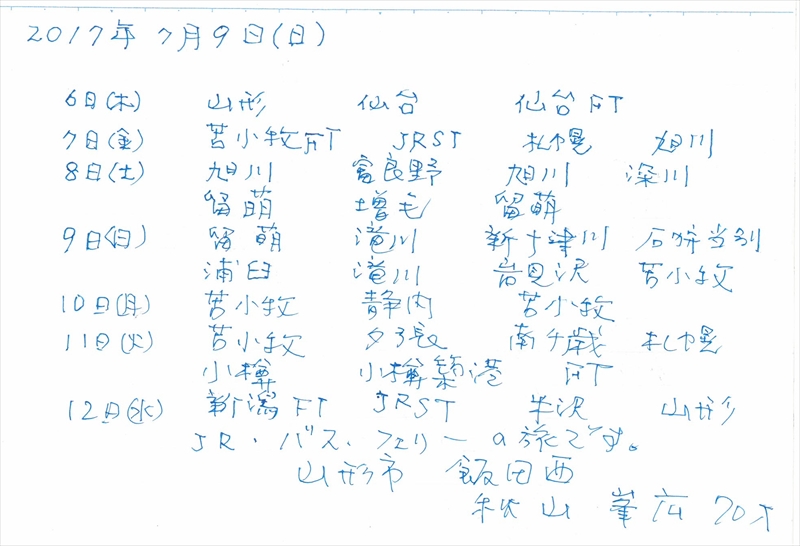 2017年7月9日(日)
6日(木) 山形 仙台 仙台FT
7日(金) 苫小牧FT JRST 札幌 旭川
8日(土) 旭川 富良野 旭川 深川
留萌 増毛 留萌
9日(日) 留萌 滝川 新十津川 石狩当別
浦臼 滝川 岩見沢 苫小牧
10日(月) 苫小牧 静内 苫小牧
11日(火) 苫小牧 夕張 南千歳 札幌
小樽 小樽築港 FT
12日(水) 新潟FT JRST 米沢 山形
JR・バス・フェリーの旅です。
山形市 飯田西
秋山 峯広 70才